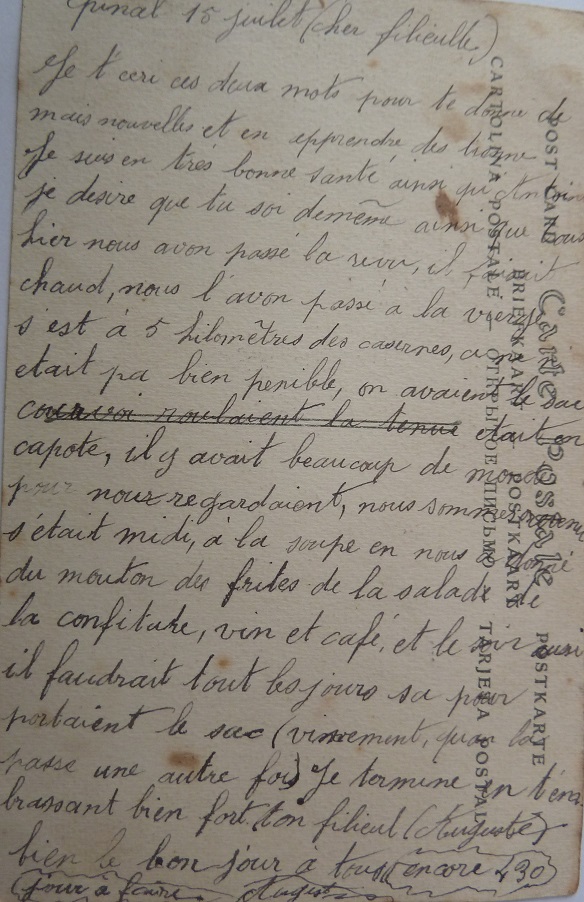 pinal 15 juillet (cher filieulle)
Je t'ecri ces deux mots pour te donné de
mais nouvelles et en apprendre des bonne
Je suis en très bonne santé ainsi qu'
je desire que tu soi demême ainsi que tous
hier nous avon passé la revu, il fesait
chaud, nous l'avon passé à la vierge
s'est à 5 kilomètres des casernes, 
etait pa bien penible, on avaient le sac
couvoi roulaient la tenue était en
capote, il y avait beaucoup de monde
pour nour regardaient, nous sommes
s'était midi, à la soupe en nous a donné
du mouton des frites de la salade de
la confiture, vin et café, et le soir aussi
il faudrait tout les jours sa pour
portaient le sac (vivement, quon la
passe une autre fois) Je termine en t'em
brassant bien fort. ton filieul (Auguste)
bien le bon jour à tous encore 430
(jour à faire. August
CARTOLINA POSTALE — ОТКРЫТОЕ ПИСЬМО TARJETA POSTAL
BRIEFKAART POSTKAART
POST CARD Carte Postale POSTKARTE